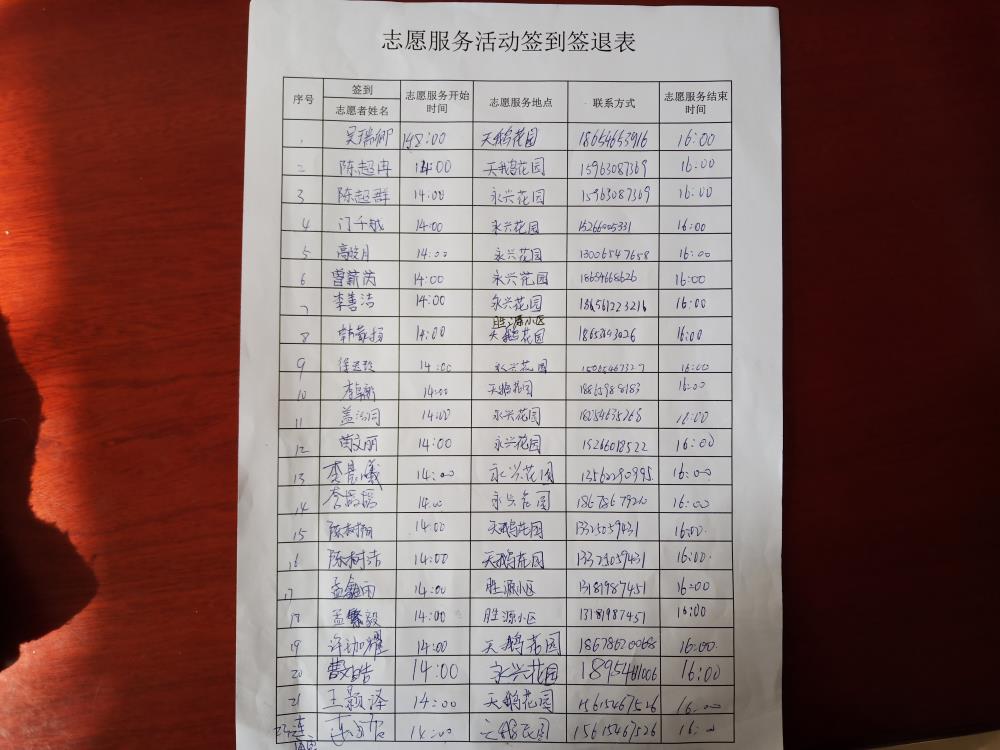 志愿服务活动签到签退表
序号 签到 志愿者姓名 志愿服务开始时间 志愿服务地点 联系方式 志愿服务结束时间
1 吴瑞卿 14:00 天鹅花园 18654653916 16:00
二 陈超冉 14:00 天鹅花园 15963087369 16:00
3 陈超群 14:00 永兴花园 15963087369 16:00
4 门千越 14:00 永兴花园 16:00
5 高皎月 14:00 永兴花园 13006547658 16:00
6 曾薪芮 14:00 永兴花园 18654668626 16:00
7 李善洁 14:00 永兴花园 186561223216 16:00
胜源小区
8 14:00 天鹅花园 16:00
9 14:00 永兴花园 16:00
10 14:00 天鹅花园 16:00
11 14:00 永兴花园 16:00
12 14:00 永兴花园 15266018522 16:00
13 李景曦 14:00 永兴花园 13560290995 16:00
14 14:00 永兴花园 16:00
15 陈树翔 14:00 天鹅花园 13325059431 16:00
16 陈树洁 14:00 天鹅花园 13325059431 16:00
17 14:00 胜源小区 13181987451 16:00
18 孟繁毅 14:00 胜源小区 13181987451 16:00
19 许珈耀 14:00 天鹅花园 18678620068 16:00
20 14:00 永兴花园 16:00
21 王颢泽 14:00 天鹅花园 15615467526 16:00
14:00 天鹅花园 15615467526 16: